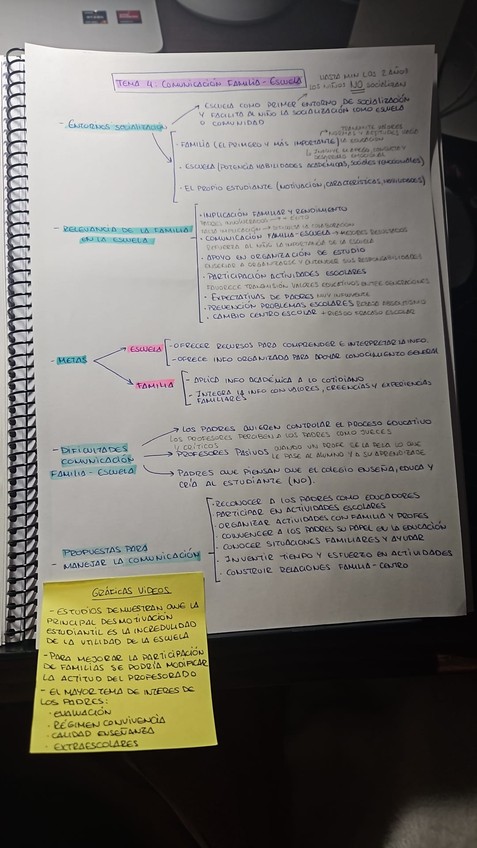 TEMA 4. COMUNICACIÓN FAMILIA-ESCUELA
HASTA MIN LOS 2 AÑOS
LOS NIÑOS NO SOCIALIZAN
- ENTORNOS SOCIALIZACIÓN
ESCUELA COMO PRIMER ENTORNO DE SOCIALIZACIÓN
Y FACILITA AL NIÑO LA SOCIALIZACIÓN COMO ESCUELA
O COMUNIDAD
· FAMILIA (EL PRIMERO Y MÁS IMPORTANTE)
TRANSMITE VALORES
NORMAS Y APTITUDES HACIA
LA EDUCACIÓN
DESARROLLO EMOCIONAL
· ESCUELA (POTENCIA HABILIDADES ACADÉMICAS, SOCIALES Y EMOCIONALES)
· EL PROPIO ESTUDIANTE (MOTIVACIÓN, CARACTERÍSTICAS, HABILIDADES)
- RELEVANCIA DE LA FAMILIA
EN LA ESCUELA
· IMPLICACIÓN FAMILIAR Y RENDIMIENTO
PADRES INVOLUCRADOS → + ÉXITO
· COMUNICACIÓN FAMILIA-ESCUELA → MEJORES RESULTADOS
REFUERZA AL NIÑO LA IMPORTANCIA DE LA ESCUELA
· APOYO EN ORGANIZACIÓN DE ESTUDIO
ENSEÑARLE A ORGANIZARSE Y ENTENDER SUS RESPONSABILIDADES
· PARTICIPACIÓN ACTIVIDADES ESCOLARES
FAVORECE TRANSMISIÓN VALORES EDUCATIVOS ENTRE GENERACIONES
· EXPECTATIVAS DE PADRES MUY INFLUYENTE
· PREVENCIÓN PROBLEMAS ESCOLARES
· CAMBIO CENTRO ESCOLAR + RIESGO FRACASO ESCOLAR
- METAS
ESCUELA
- OFRECER RECURSOS PARA COMPRENDER E INTERPRETAR LA INFO.
- OFRECE INFO ORGANIZADA PARA APOYAR CONOCIMIENTO GENERAL
FAMILIA
- APLICA INFO ACADÉMICA A LO COTIDIANO
- INTEGRA LA INFO CON VALORES, CREENCIAS Y EXPERIENCIAS
FAMILIARES
- DIFICULTADES
COMUNICACIÓN
FAMILIA-ESCUELA
LOS PADRES QUIEREN CONTROLAR EL PROCESO EDUCATIVO
LOS PROFESORES PERCIBEN A LOS PADRES COMO JUECES
Y CRÍTICOS
PROFESORES PASIVOS CUANDO UN PROFE SE LA PELA LO QUE
LE PASE AL ALUMNO Y A SU APRENDIZAJE
PADRES QUE PIENSAN QUE EL COLEGIO ENSEÑA, EDUCA Y
CRÍA AL ESTUDIANTE (NO).
PROPUESTAS PARA
- MANEJAR LA COMUNICACIÓN
· RECONOCER A LOS PADRES COMO EDUCADORES
PARTICIPAR EN ACTIVIDADES ESCOLARES
· ORGANIZAR ACTIVIDADES CON FAMILIA Y PROFES
· CONVENCER A LOS PADRES SU PAPEL EN LA EDUCACIÓN
· CONOCER SITUACIONES FAMILIARES Y AYUDAR
· INVERTIR TIEMPO Y ESFUERZO EN ACTIVIDADES
· CONSTRUIR RELACIONES FAMILIA-CENTRO
GRÁFICAS VIDEOS
- ESTUDIOS DEMUESTRAN QUE LA
PRINCIPAL DESMOTIVACIÓN
ESTUDIANTIL ES LA INCREDULIDAD
DE LA UTILIDAD DE LA ESCUELA
- PARA MEJORAR LA PARTICIPACIÓN
DE FAMILIAS SE PODRÍA MODIFICAR
LA ACTITUD DEL PROFESORADO
- EL MAYOR TEMA DE INTERES DE
LOS PADRES:
· EVALUACIÓN
· RÉGIMEN CONVIVENCIA
· CALIDAD ENSEÑANZA
· EXTRAESCOLARES